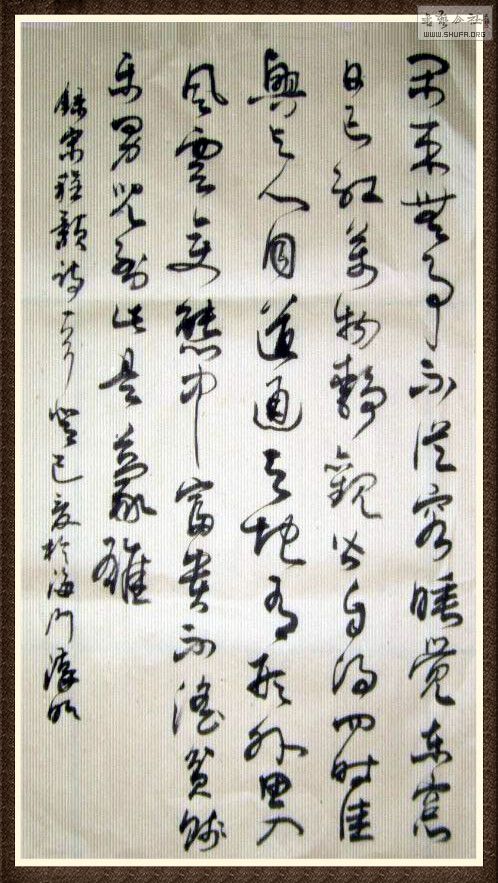 闲来無事不從容睡觉東窗
日已红萬物静觀皆自得四时佳
興与人同道通天地有形外思入
风雲变態中富貴不淫貧賤
乐男児到此是豪雄
録宋程颢诗一首癸巳夏於海门
书艺公社
WWW.SHUFA.ORG